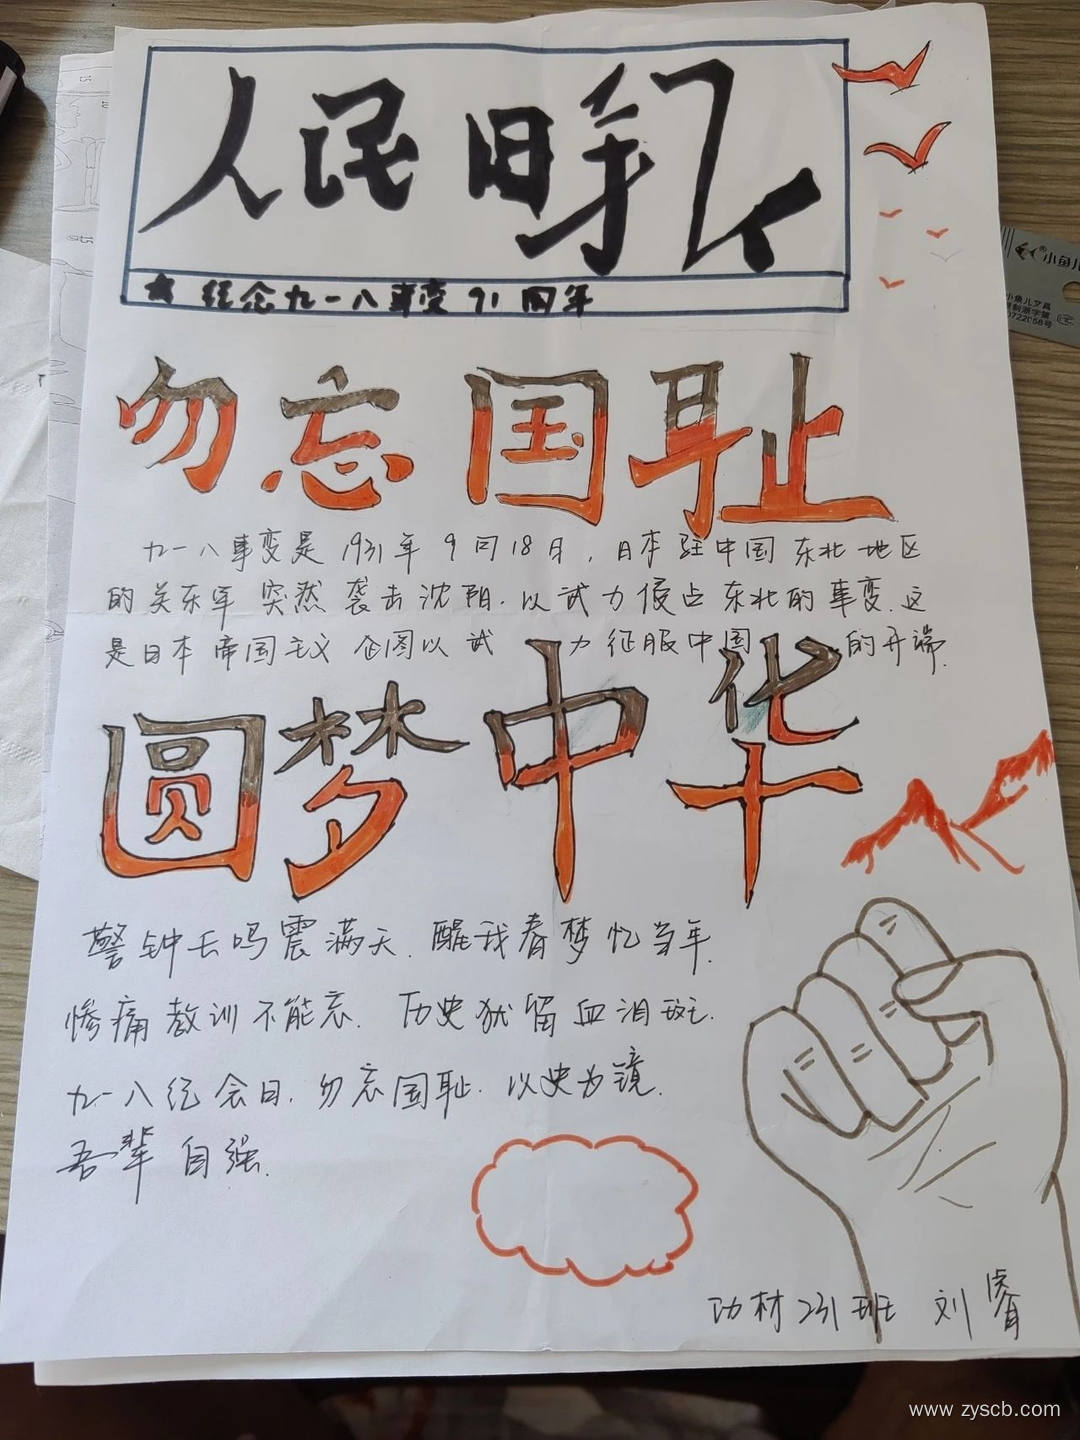 人民日報
★ 纪念九一八事变91周年
勿忘国耻
九一八事变是1931年9月18日，日本驻中国东北地区
的关东军突然袭击沈阳.以武力侵占东北的事变.这
是日本帝国主义企图以武力征服中国的开端.
圆梦中华
警钟长鸣震满天.醒我春梦忆当年.
惨痛教训不能忘.历史犹留血泪斑.
九一八纪念日.勿忘国耻.以史为镜.
吾辈自强.
功材231班 刘睿
小鱼儿
小鱼儿文具
www.zyscb.com